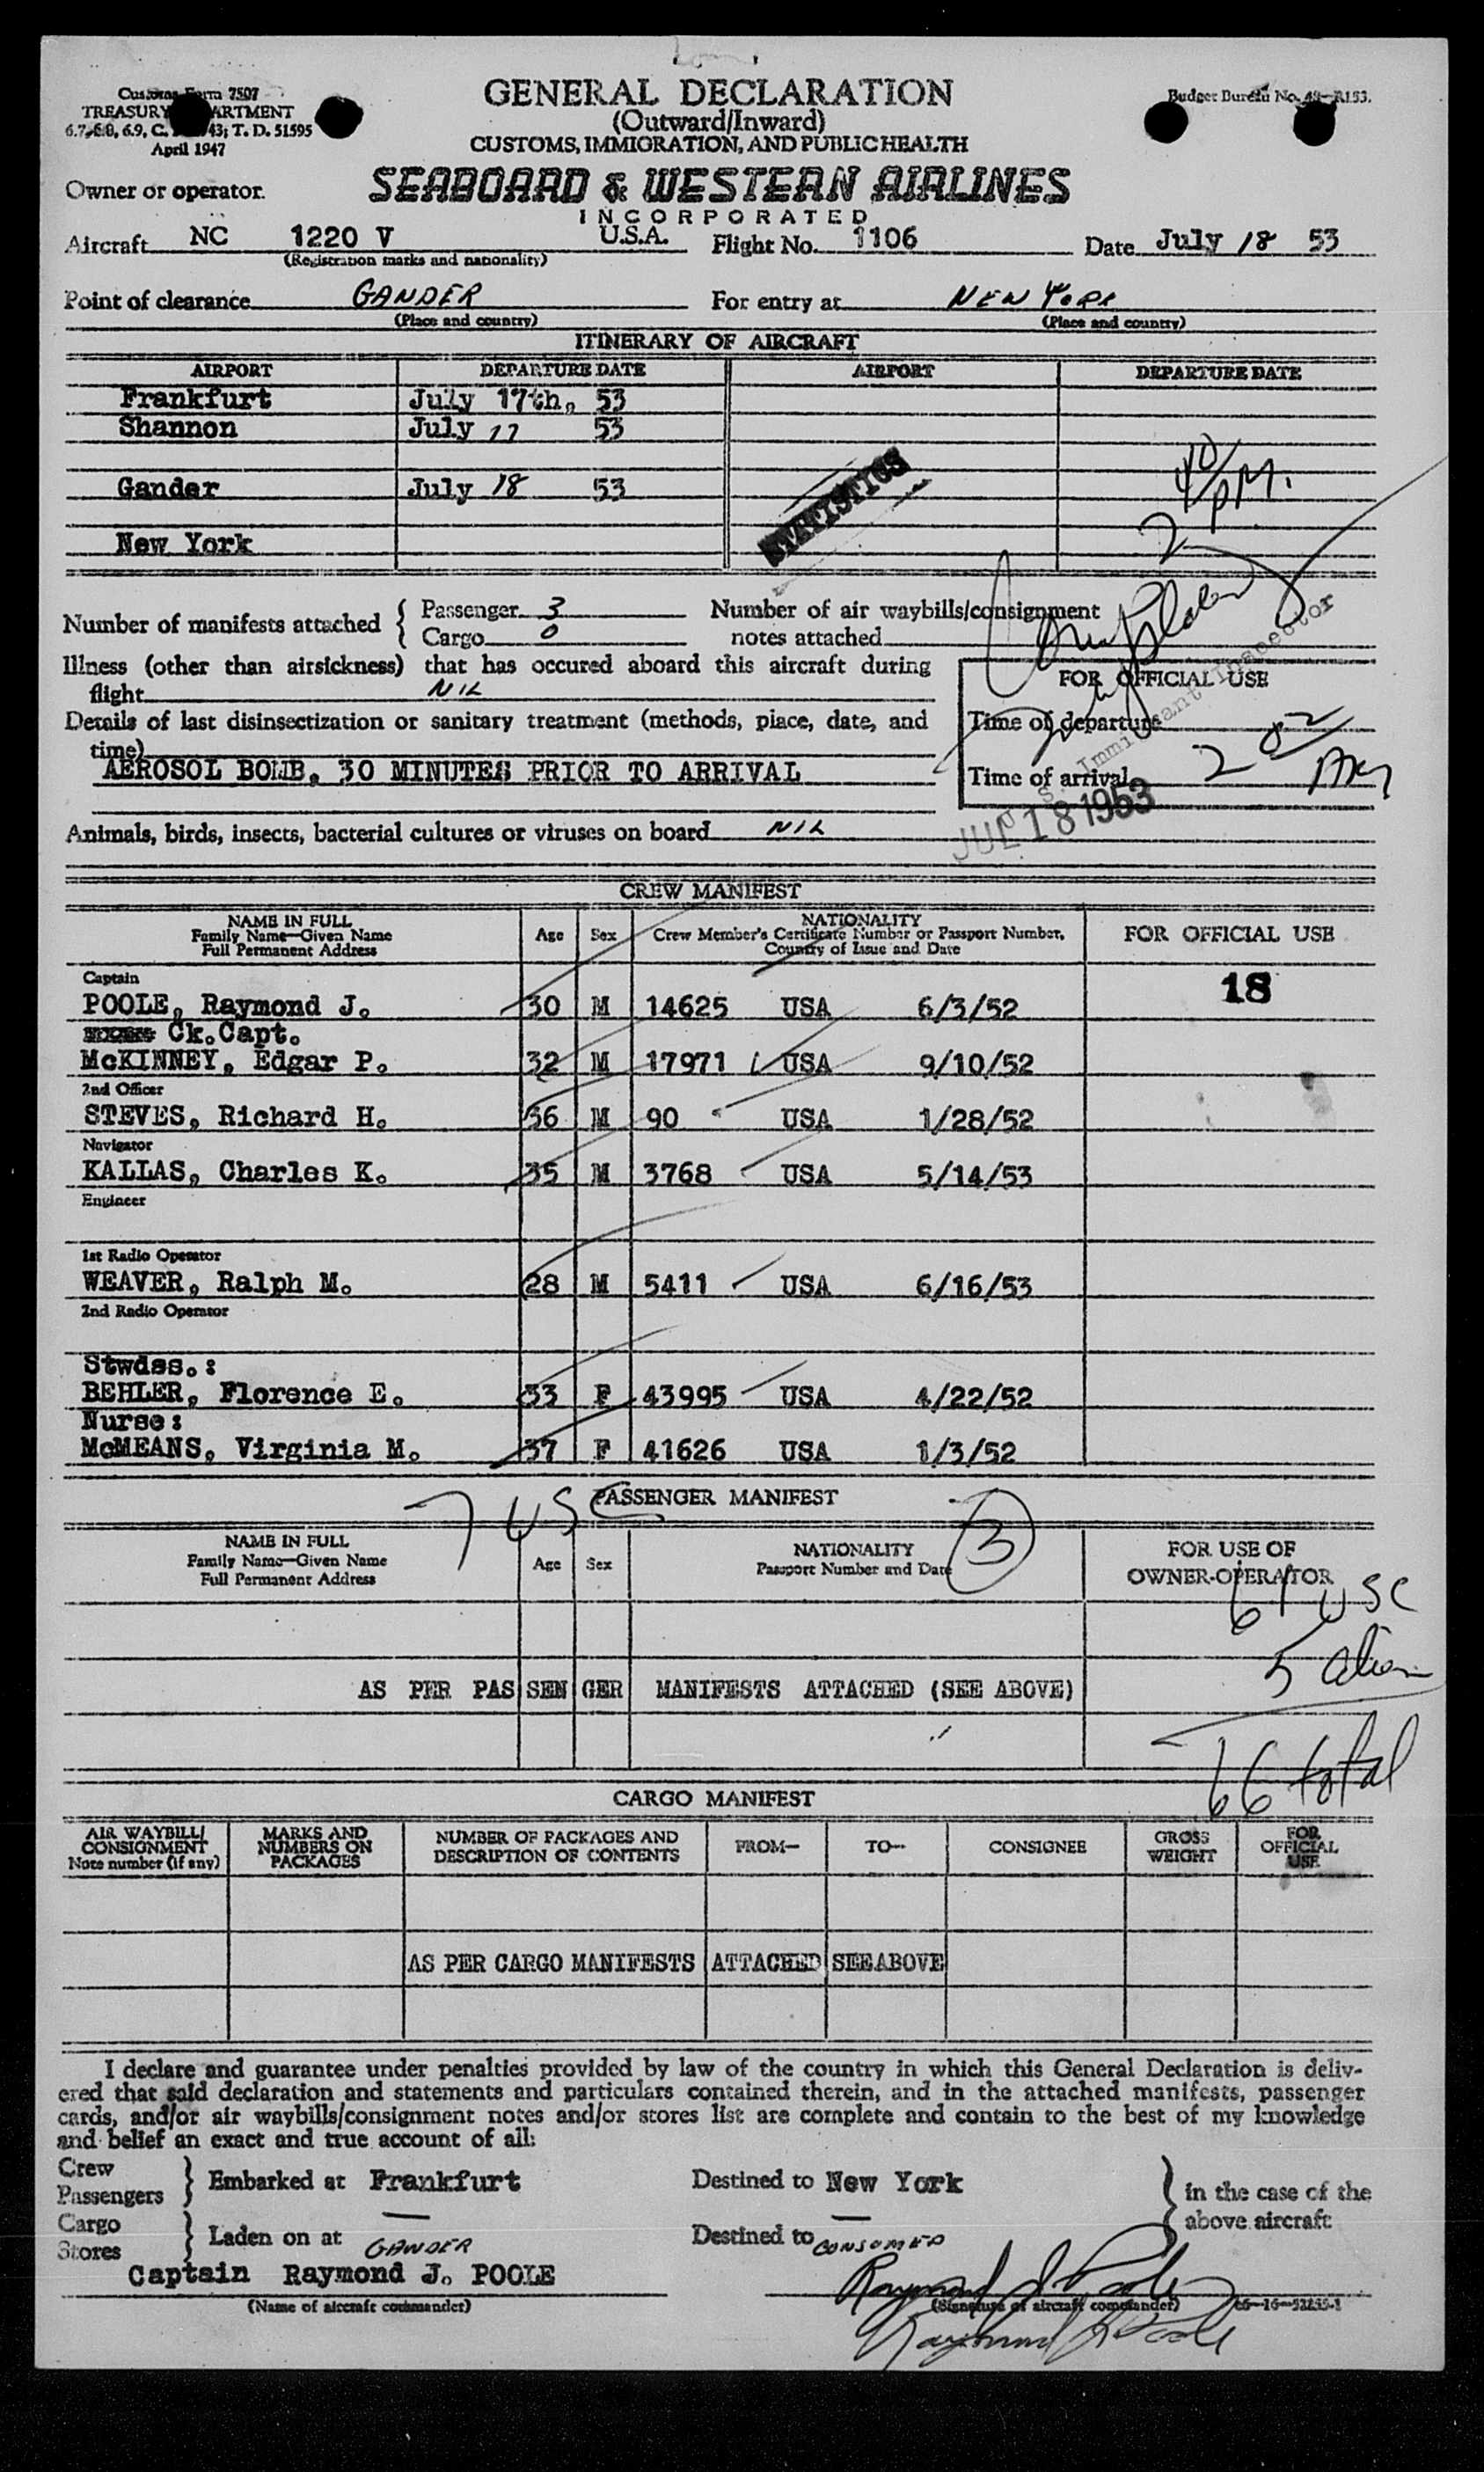 Customs Form 7507
TREASURY DEPARTMENT
April 1947
GENERAL DECLARATION
(Outward/Inward)
CUSTOMS, IMMIGRATION, AND PUBLIC HEALTH
Budget Bureau No. 48-R153.
Owner or operator.
SEABOARD & WESTERN AIRLINES
INCORPORATED
Aircraft NC 1220 V U.S.A. Flight No. 1106 Date July 18 53
(Registration marks and nationality)
Point of clearance GANDER For entry at NEW YORK
(Place and country) (Place and country)
ITINERARY OF AIRCRAFT
AIRPORT DEPARTURE DATE AIRPORT DEPARTURE DATE
Frankfurt July 17th, 53
Shannon July 17 53
Gander July 18 53
New York
STATISTICS
2 40/PM.
Number of manifests attached { Passenger 3 Number of air waybills/consignment
Cargo 0 notes attached
Illness (other than airsickness) that has occured aboard this aircraft during
flight NIL
FOR OFFICIAL USE
Details of last disinsectization or sanitary treatment (methods, place, date, and
time)
AEROSOL BOMB, 30 MINUTES PRIOR TO ARRIVAL
Time of departure
Time of arrival 2 02
U.S. Immigrant Inspector
JUL 18 1953
Animals, birds, insects, bacterial cultures or viruses on board NIL
CREW MANIFEST
NAME IN FULL
Family Name—Given Name
Full Permanent Address
Age Sex
NATIONALITY
Crew Member's Certificate Number or Passport Number,
Country of Issue and Date
FOR OFFICIAL USE
18
Captain
POOLE, Raymond J. 30 M 14625 USA 6/3/52
Ck.Capt.
McKINNEY, Edgar P. 32 M 17971 USA 9/10/52
2nd Officer
STEVES, Richard H. 36 M 90 USA 1/28/52
Navigator
KALLAS, Charles K. 35 M 3768 USA 5/14/53
Engineer
1st Radio Operator
WEAVER, Ralph M. 28 M 5411 USA 6/16/53
2nd Radio Operator
Stwdss.:
BEHLER, Florence E. 33 F 43995 USA 4/22/52
Nurse:
McMEANS, Virginia M. 37 F 41626 USA 1/3/52
7 USC
PASSENGER MANIFEST
3
NAME IN FULL
Family Name—Given Name
Full Permanent Address
Age Sex
NATIONALITY
Passport Number and Date
FOR USE OF
OWNER-OPERATOR
61 USC
5 alien
AS PER PASSENGER MANIFESTS ATTACHED (SEE ABOVE)
66 total
CARGO MANIFEST
AIR WAYBILL/
CONSIGNMENT
Note number (if any)
MARKS AND
NUMBERS ON
PACKAGES
NUMBER OF PACKAGES AND
DESCRIPTION OF CONTENTS
FROM— TO— CONSIGNEE
GROSS
WEIGHT
FOR
OFFICIAL
USE
AS PER CARGO MANIFESTS ATTACHED SEE ABOVE
I declare and guarantee under penalties provided by law of the country in which this General Declaration is deliv-
ered that said declaration and statements and particulars contained therein, and in the attached manifests, passenger
cards, and/or air waybills/consignment notes and/or stores list are complete and contain to the best of my knowledge
and belief an exact and true account of all:
Crew
Passengers } Embarked at Frankfurt Destined to New York } in the case of the
above aircraft
Cargo —  —
Stores } Laden on at GANDER Destined to CONSUMED
Captain Raymond J. POOLE Raymond J. Poole
(Name of aircraft commander) (Signature of aircraft commander)
Raymond J. Poole